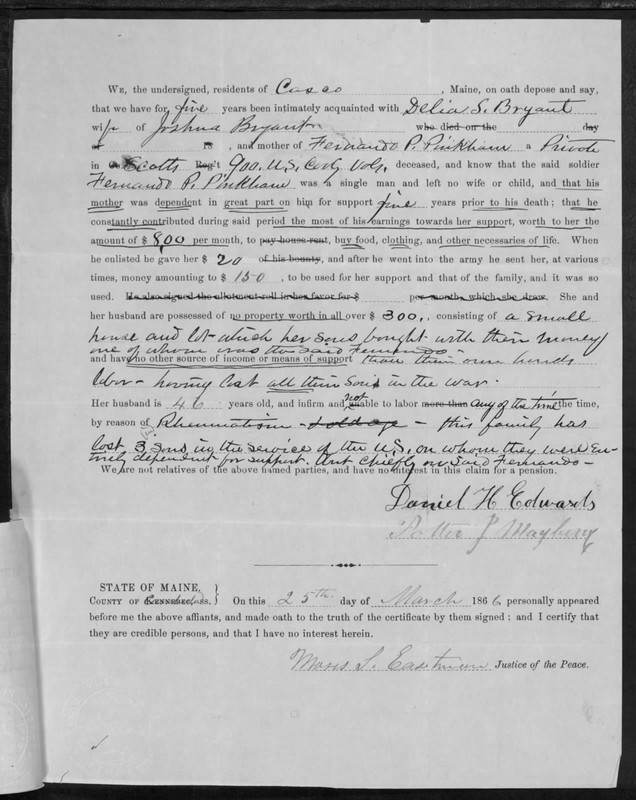 WE, the undersigned, residents of Casco , Maine, on oath depose and say,
that we have for five years been intimately acquainted with Delia S. Bryant
wife of Joshua Bryant who died on the day
of 18 , and mother of Fernando P. Pinkham a Private
in Scotts Reg't 900. U.S. Cavly Vols, deceased, and know that the said soldier
Fernando P. Pinkham was a single man and left no wife or child, and that his
mother was dependent in great part on him for support five years prior to his death; that he
constantly contributed during said period the most of his earnings towards her support, worth to her the
amount of $ 8,00 per month, to pay house rent, buy food, clothing, and other necessaries of life. When
he enlisted he gave her $ 20 of his bounty, and after he went into the army he sent her, at various
times, money amounting to $ 150 , to be used for her support and that of the family, and it was so
used. He also signed the allotment roll in her favor for $ per month, which she draw. She and
her husband are possessed of no property worth in all over $ 300, consisting of a small
house and lot which her sons bought with their money
one of whom was the said Fernando
and have no other source of income or means of support than their own hands
labor - having lost all their sons in the war.
Her husband is 46 years old, and infirm and not able to labor more than any of the time the time,
by reason of Rheumatism - & old age - this family has
lost 3 sons in the service of the U.S. on whom they were en-
tirely dependent for support. But chiefly on said Fernando -
We are not relatives of the above named parties, and have no interest in this claim for a pension.
Daniel H Edwards
J Mayberry
STATE OF MAINE,
COUNTY OF KENNEBEC, SS. On this 25th day of March 1866 personally appeared
before me the above affiants, and made oath to the truth of the certificate by them signed; and I certify that
they are credible persons, and that I have no interest herein.
Moses S. Eastman Justice of the Peace.